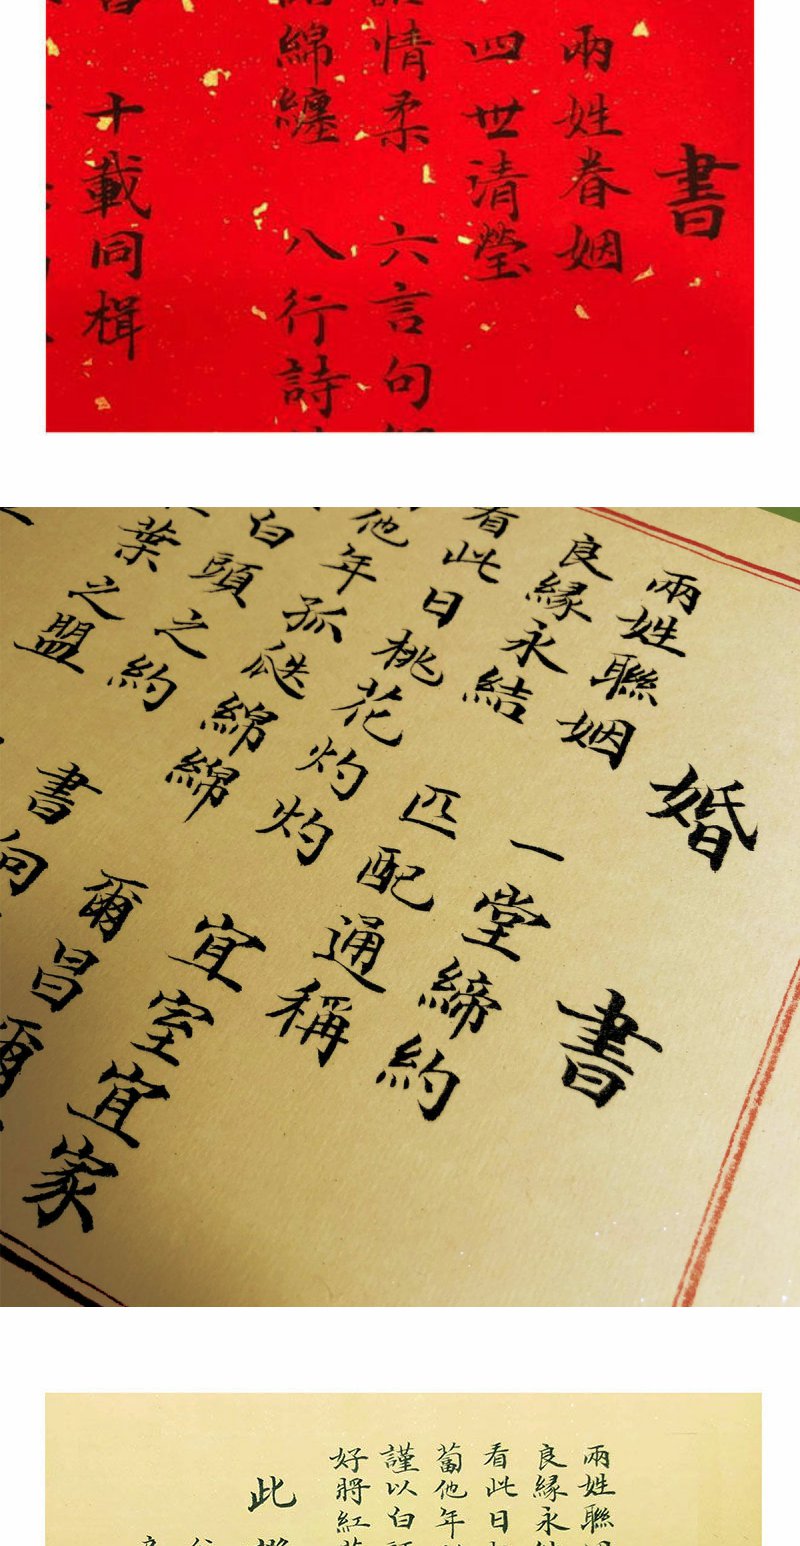 書
兩姓眷姻
四世清瑩
情柔 六言句
綿纏 八行詩
十載同楫
婚書
兩姓聯姻 一堂締約
良緣永結 匹配通稱
看此日桃花灼灼 宜室宜家
他年孤瓞綿綿 爾昌爾
白頭之約 書向
葉之盟
兩姓聯
良緣永
看此日
蔔他年
謹以白
好將紅
此